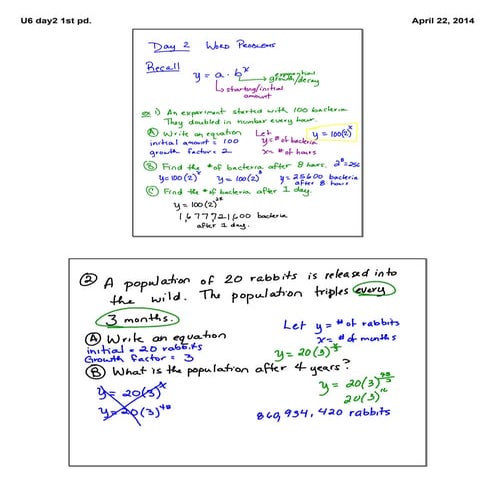 U6 day2 1st pd.
April 22, 2014
Day 2 Word Problems
Recall
y = a · b^x
exponential growth/decay
starting/initial amount
Ex 1) An experiment started with 100 bacteria
They doubled in number every hour.
(A) Write an equation Let y = 100(2)^x
initial amount = 100 y = # of bacteria
growth factor = 2 x = # of hours
(B) Find the # of bacteria after 8 hours. 2^8 = 256
y = 100(2)^x y = 100(2)^8 y = 25600 bacteria
after 8 hours
(C) Find the # of bacteria after 1 day.
y = 100(2)^24
1,677721600 bacteria
after 1 day.
(2) A population of 20 rabbits is released into
the wild. The population triples every
3 months.
Let y = # of rabbits
x = # of months
(A) Write an equation
initial = 20 rabbits
Growth factor = 3
y = 20(3)^x/3
(B) What is the population after 4 years?
y = 20(3)^x
y = 20(3)^48
y = 20(3)^48/3
20(3)^16
860,934,420 rabbits